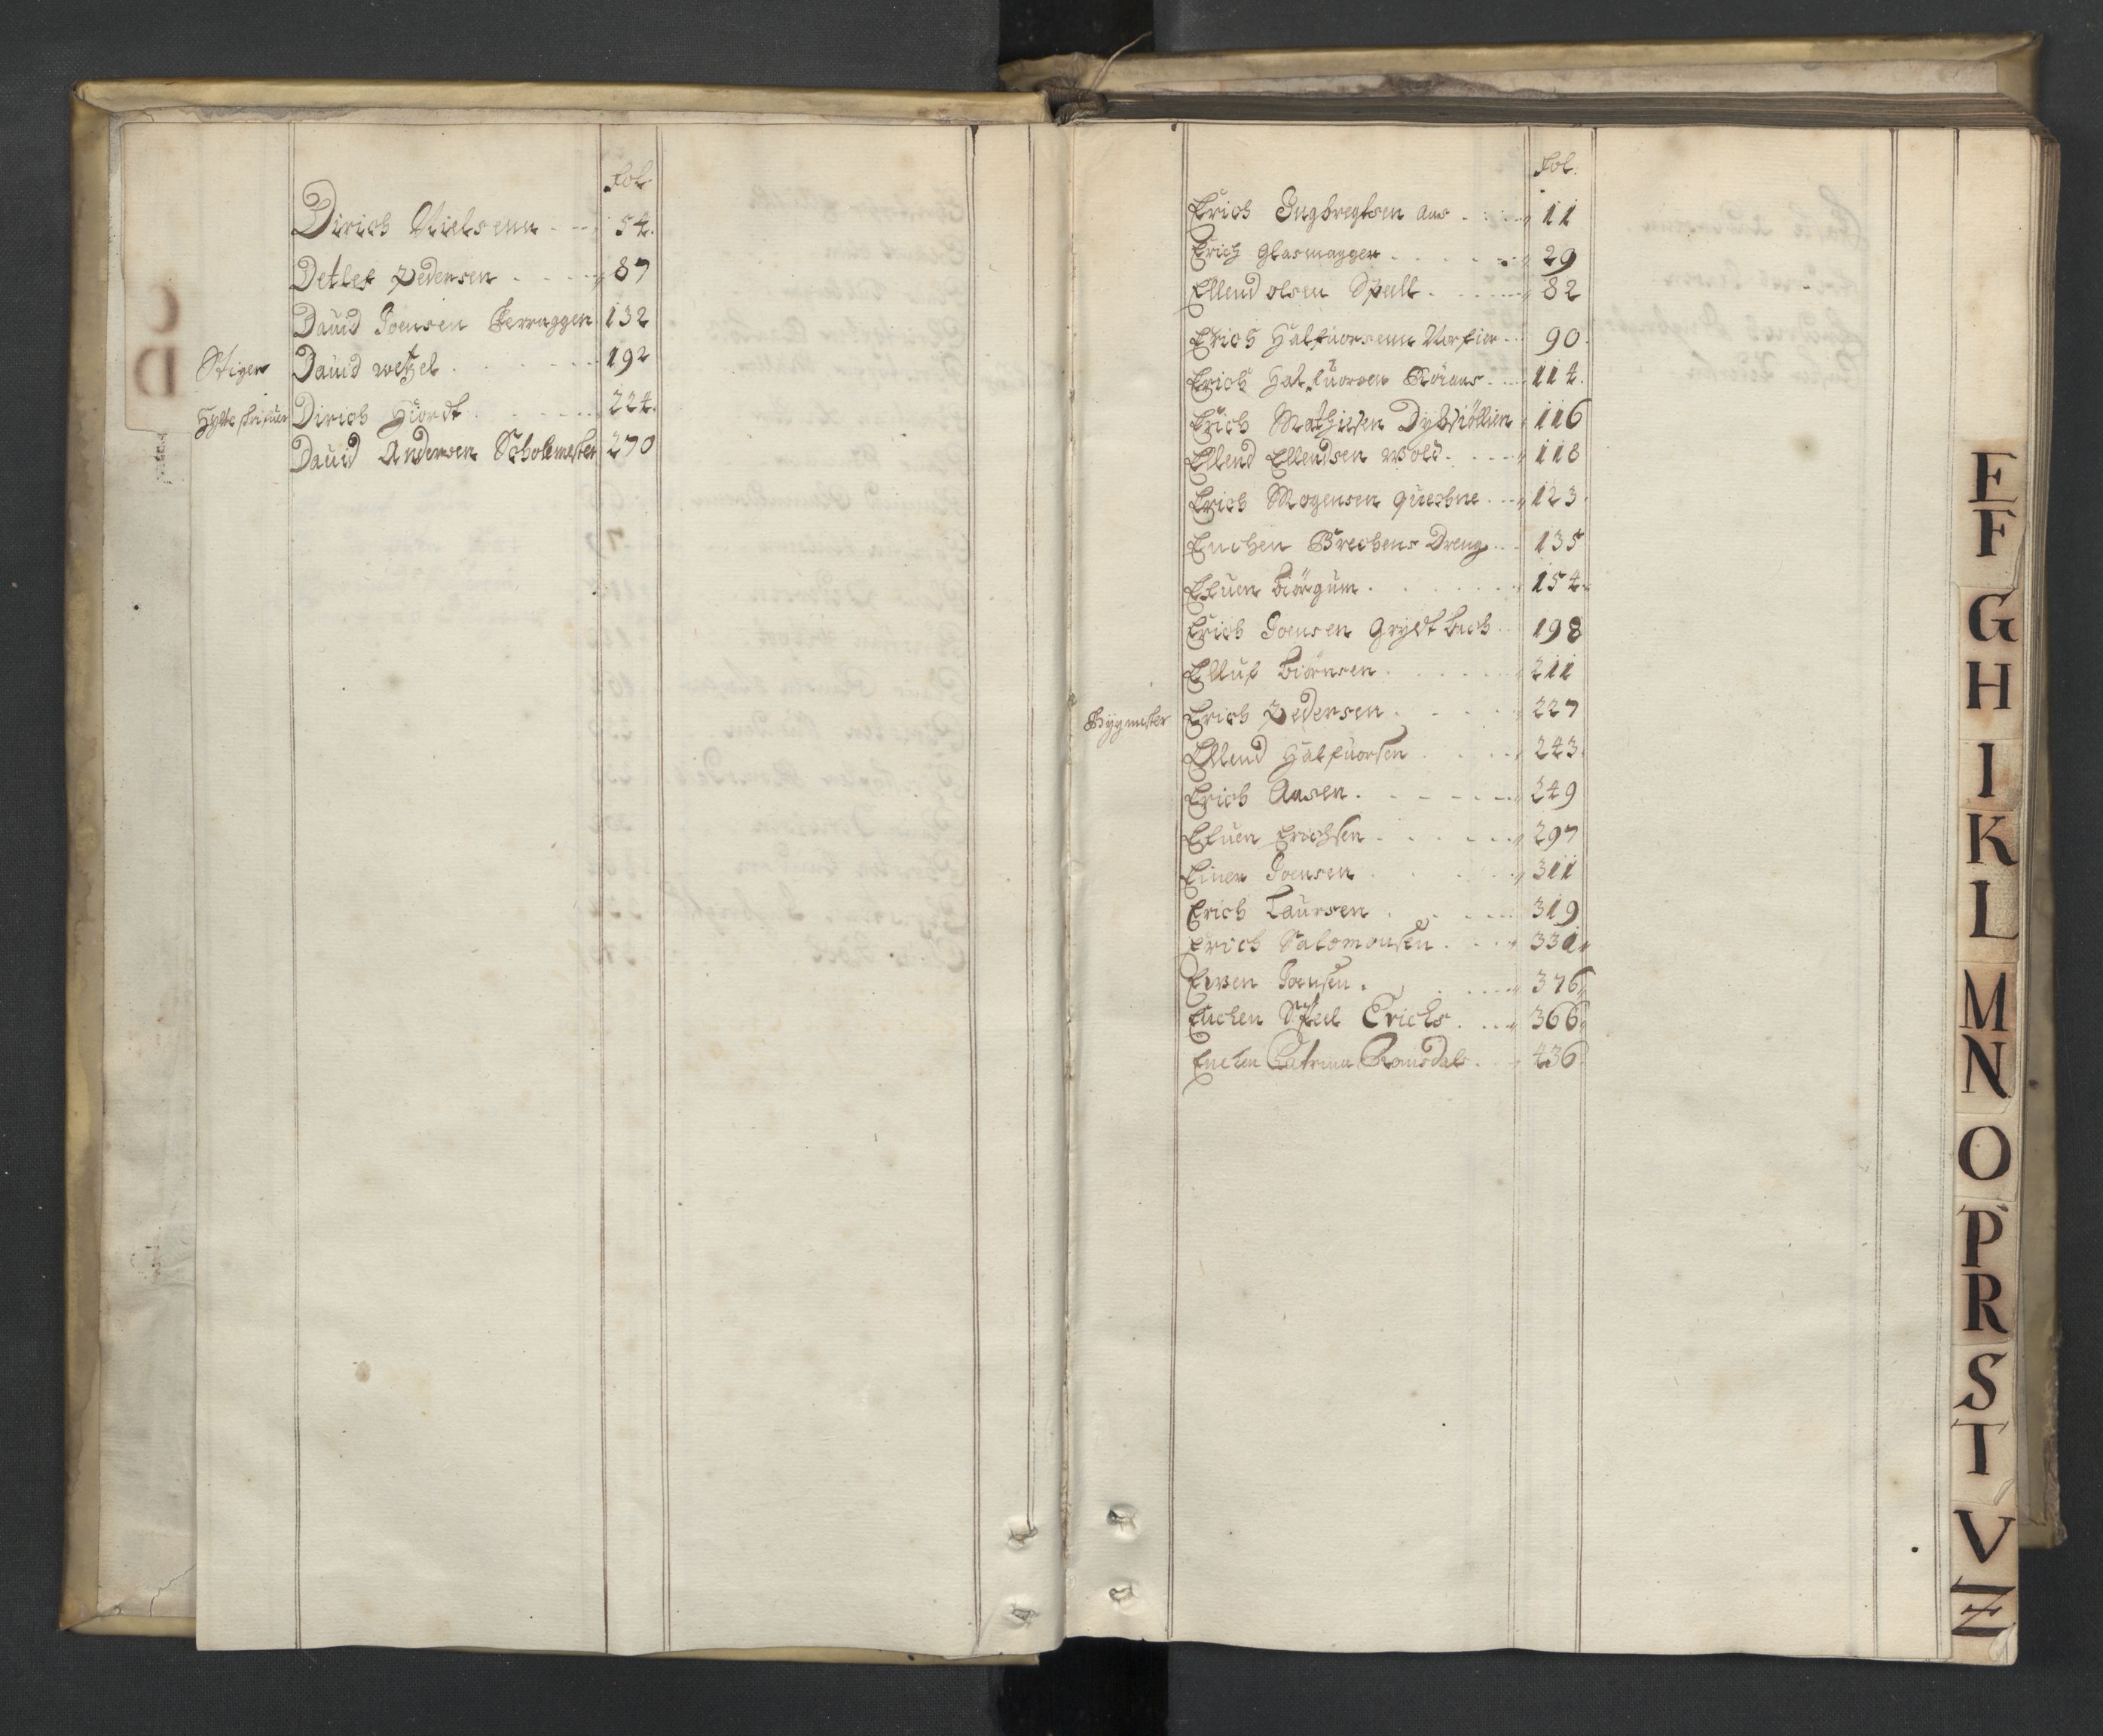 Fol.
Dirich Nielsenn 54.
Detlef Pedersen 87
Dauid Joensen Ferraggen 132
Stiger Dauid wetzel 192
Hytte skriuer Dirich Hiordt 224.
Dauid Andersen Scholemester 270
C
D
Fol.
Erich Ingbregtsen Aas 11
Erich Glasmagger 29
Ellend olsen Spell 82
Erich Halfuorsenn 90.
Erich Halfuorsen Röraas 114.
Erich Mathisen 116
Ellend Ellendsen wold 118
Erich Mogensen Quechne 123.
Enchen Brechens Dreng 135
Efuen Biörgum 154.
Erich Joensen Grydtbach 198
Elluf Biörnsen 211
Bygmester Erich Pedersen 227
Ellend Halfuorsen 243.
Erich Aasen 249
Efuen Erichsen 297
Einer Joensen 311
Erich Laursen 319
Erich Salomonsen 331
Ewen Joensen 376
Enchen Spel Erichs 366
Enchen Catrina Ramsdal 436
E
F
G
H
I
K
L
M
N
O
P
R
S
T
V
Z